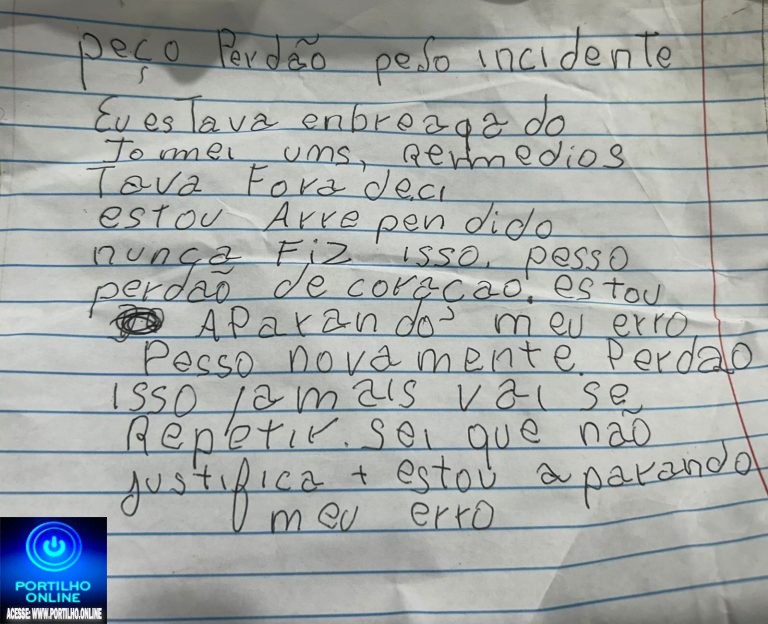 peço Perdão pelo incidente
Eu esTava enbreagado
Tomei ums, Remedios
Tava Fora deci
estou Arrependido
nunca Fiz isso, pesso
perdão de coraçao. estou
APaxando meu erro
Pesso novamente. Perdao
isso jamais vai se
Repetir. sei que não
justifica + estou aparando
meu erro
PORTILHO
ONLINE
ACESSE: WWW.PORTILHO.ONLINE